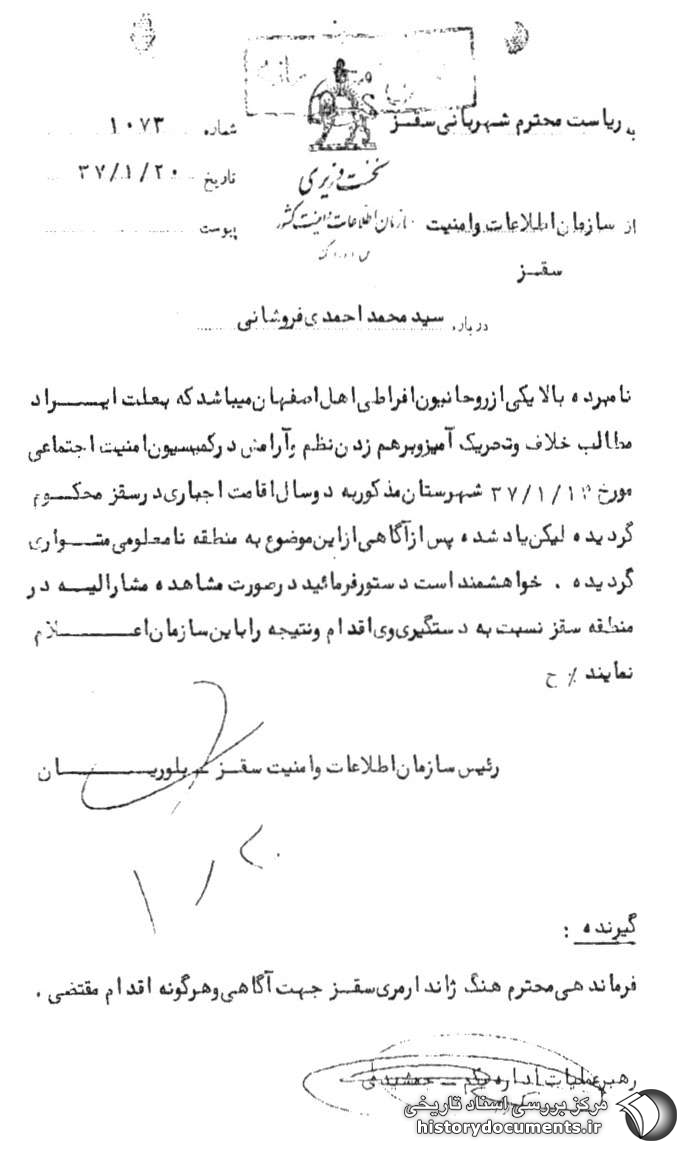 به ریاست محترم شهربانی سقز
شماره ۱۰۷۳
تاریخ ۳۷/۱/۲۰
نخست وزیری
سازمان اطلاعات و امنیت کشور
س . ا . و . ا . ک
از سازمان اطلاعات وامنیت
سقز
پیوست
درباره سید محمد احمدی فروشانی
نامبرده بالا یکی از روحانیون افراطی اهل اصفهان میباشد که بعلت ایـــراد
مطالب خلاف وتحریک آمیز وبرهم زدن نظم وآرامش در کمیسیون امنیت اجتماعی
مورخ ۳۷/۱/۱۲ شهرستان مذکور به دوسال اقامت اجباری در سقز محکـــوم
گردیده لیکن یاد شده پس از آگاهی از این موضوع به منطقه نامعلومی متـــواری
گردیده . خواهشمند است دستور فرمائید در صورت مشاهده مشارالیـــه در
منطقه سقز نسبت به دستگیری وی اقدام ونتیجه را باین سازمان اعـــــــلام
نمایند ٪ ح
رئیس سازمان اطلاعات وامنیت سقـــز ـ بلوریـــــــان
گیرنده :
فرماندهی محترم هنگ ژاندارمری سقـــز جهت آگاهی وهرگونه اقدام مقتضی .
رهبر عملیات اداره یکم ـ جمشیدی
مرکز بررسی اسناد تاریخی
historydocuments.ir